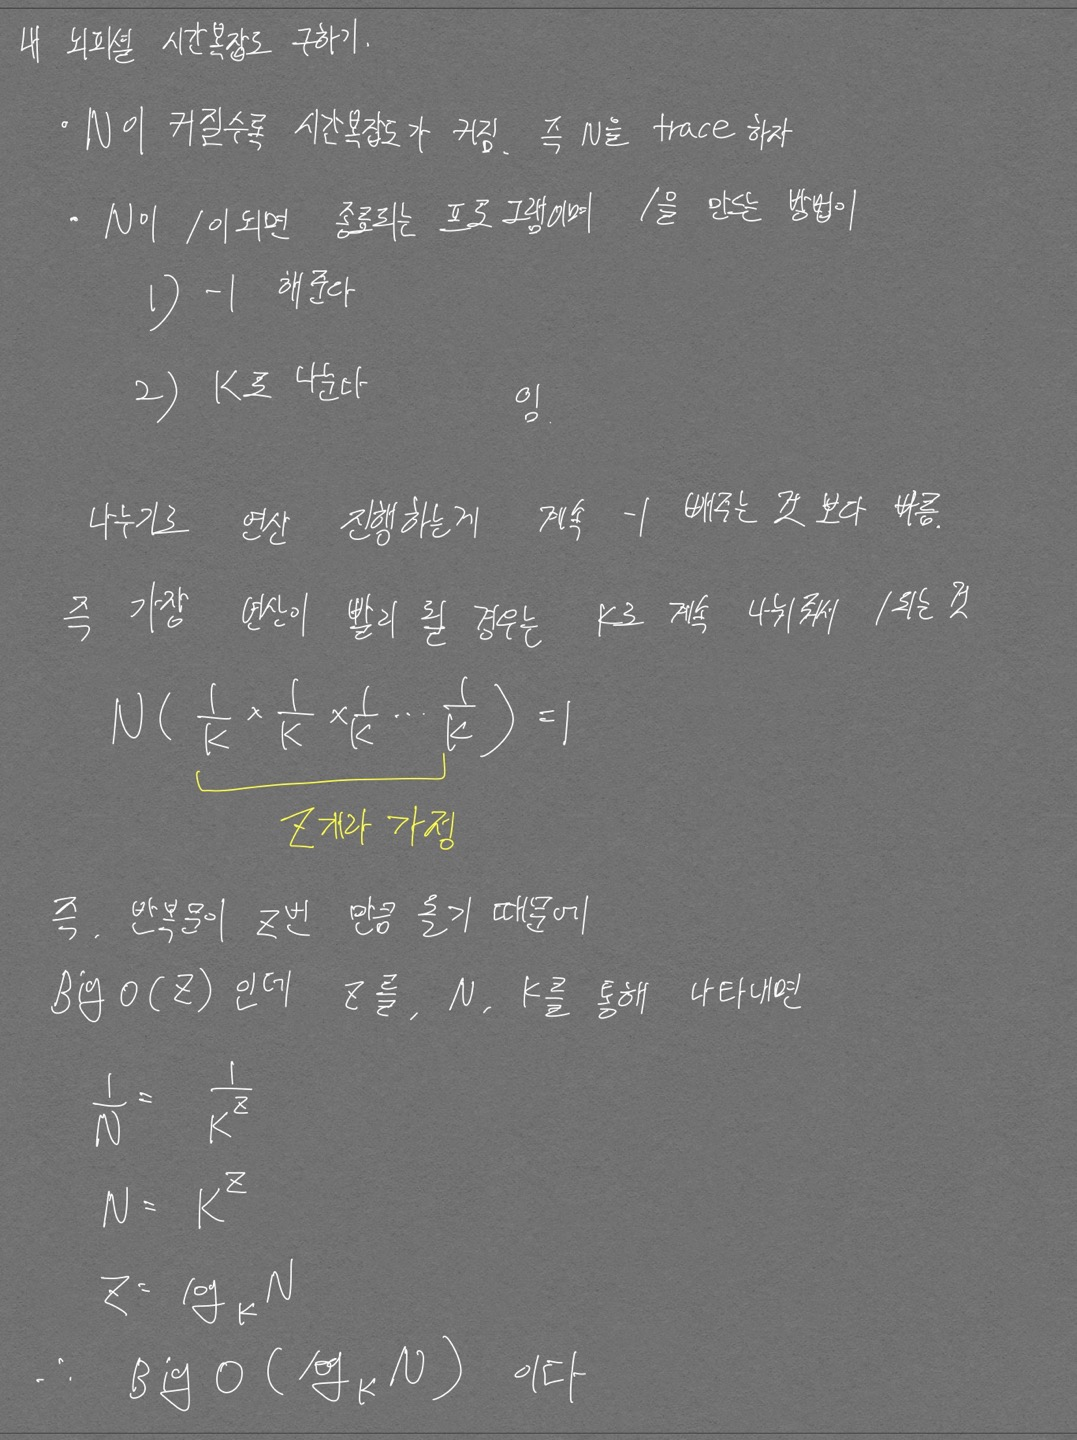 내 뇌피셜 시간복잡도 구하기.
· N이 커질수록 시간복잡도가 커짐. 즉 N을 trace 하자
· N이 1이되면 종료되는 프로그램이며 1을 만드는 방법이
1) -1 해준다
2) K로 나눈다 임.
나누기로 연산 진행하는게 계속 -1 빼주는 것 보다 빠름.
즉 가장 연산이 빨리 될 경우는 K로 계속 나눠줘서 1되는 것
N( 1/K × 1/K × 1/K ... 1/K ) = 1
Z개라 가정
즉, 반복문이 Z번 만큼 돌기 때문에
Big O(Z) 인데 Z를, N, K를 통해 나타내면
1/N = 1/K^Z
N = K^Z
Z = log_K N
∴ Big O ( log_K N ) 이다